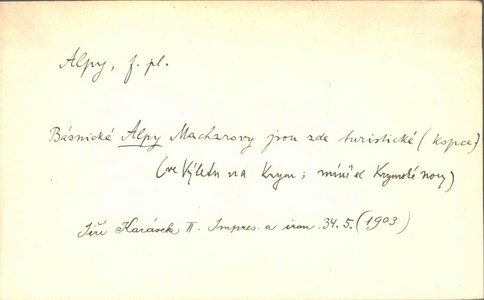 Alpy, f. pl.
Básnické Alpy Macharovy jsou zde turistické (kopce)
(ve Výletu na Krym; míní se Krymské hory)
Jiří Karásek, II. Impres. a iron. 34. 5. (1903)